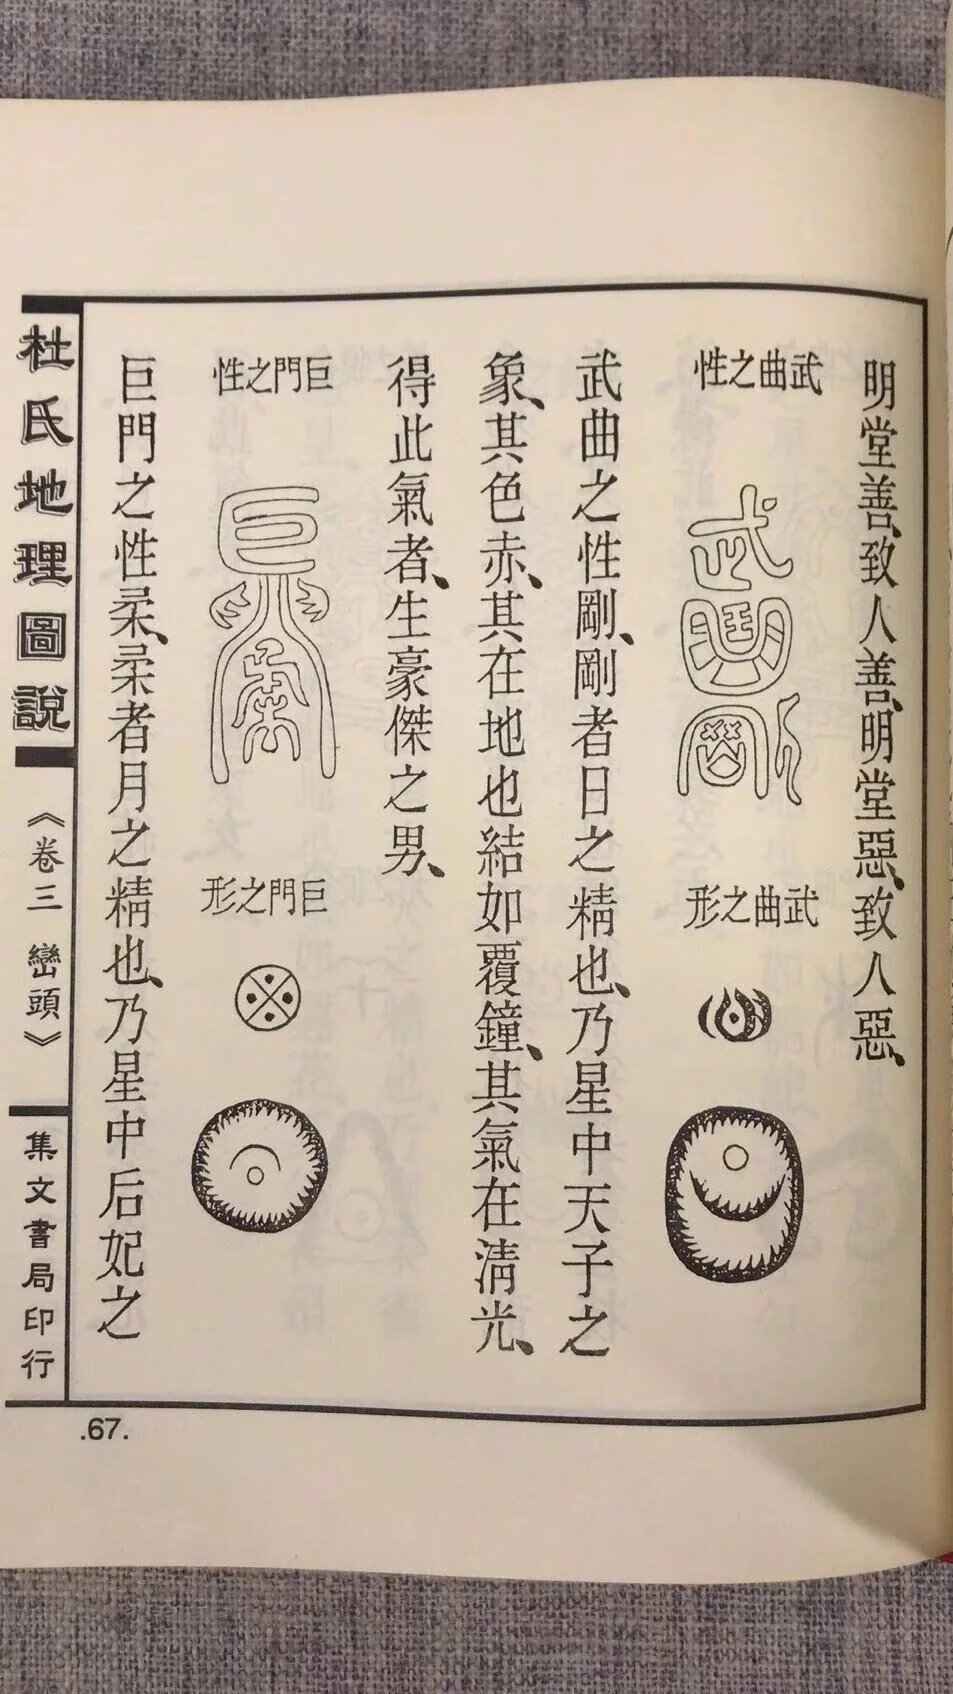 明堂善、致人善、明堂惡、致人惡、
武曲之性
武曲剛
武曲之形
武曲之性剛、剛者日之精也、乃星中天子之
象、其色赤、其在地也結如覆鐘、其氣在清光、
得此氣者、生豪傑之男、
巨門之性
巨門柔
巨門之形
巨門之性柔、柔者月之精也、乃星中后妃之
杜氏地理圖說
《卷三 巒頭》
集文書局印行
.67.